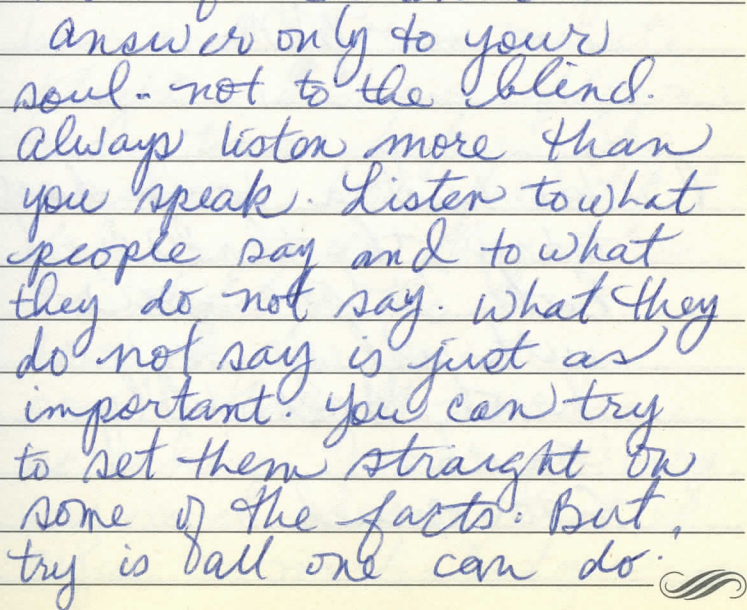 answer only to your
soul - not to the blind.
Always listen more than
you speak. Listen to what
people say and to what
they do not say. What they
do not say is just as
important. You can try
to set them straight on
some of the facts. But,
try is all one can do.